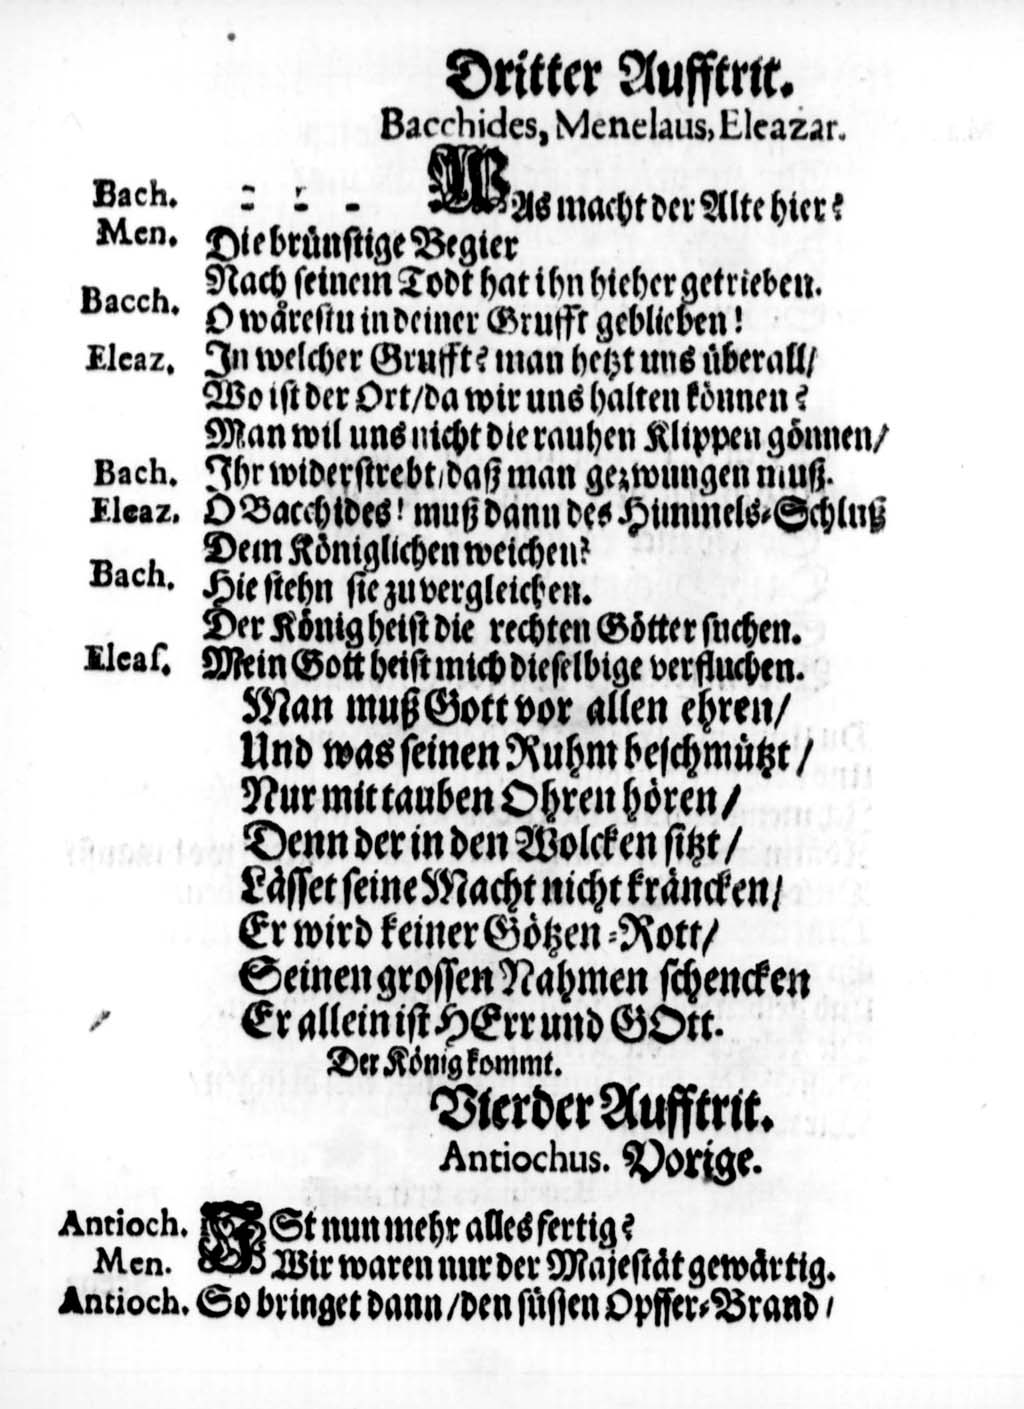 Dritter Aufftrit.
Bacchides, Menelaus, Eleazar.
Bach. = = - WAs macht der Alte hier?
Men. Die brünstige Begier
Nach seinem Todt hat ihn hieher getrieben.
Bacch. O wårestu in deiner Grufft geblieben!
Eleaz. In welcher Grufft? man hetzt uns überall/
Wo ist der Ort/da wir uns halten können?
Man wil uns nicht die rauhen Klippen gönnen/
Bach. Ihr widerstrebt/daß man gezwungen muß.
Eleaz. O Bacchides! muß dann des Himmels-Schluß
Dem Königlichen weichen?
Bach. Hie stehn sie zu vergleichen.
Der König heist die rechten Götter suchen.
Eleas. Mein Gott heist mich dieselbige verfluchen.
Man muß Gott vor allen ehren/
Und was seinen Ruhm beschmützt/
Nur mit tauben Ohren hören/
Denn der in den Wolcken sitzt/
Lässet seine Macht nicht kräncken/
Er wird keiner Götzen-Rott/
Seinen grossen Nahmen schencken
Er allein ist HErr und GOtt.
Der König kommt.
Vierder Aufftrit.
Antiochus. Vorige.
Antioch. ISt nun mehr alles fertig?
Men. Wir waren nur der Majestät gewärtig.
Antioch. So bringet dann/den süssen Opffer-Brand/